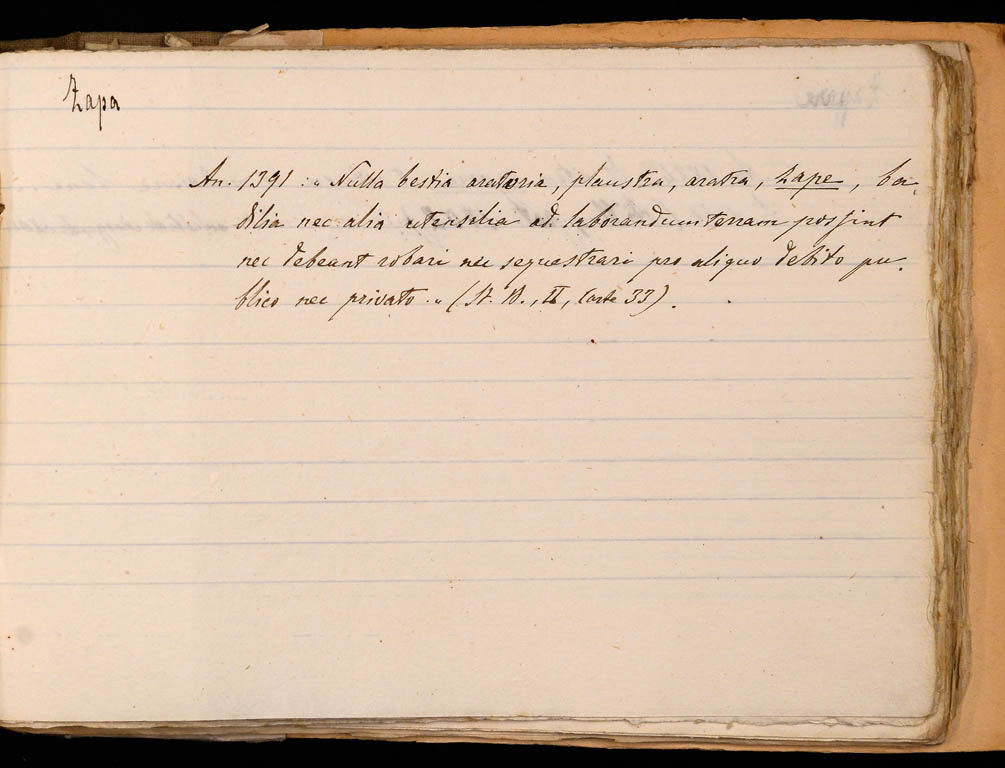 Zapa
An. 1391 : „ Nulla bestia aratoria, plaustra, aratra, zape, ba-
dilia nec alia utensilia ad laborandum terram possint
nec debeant robari nec sequestrari pro aliquo debito pu-
blico nec privato. „ (St. B., II, carte 33).